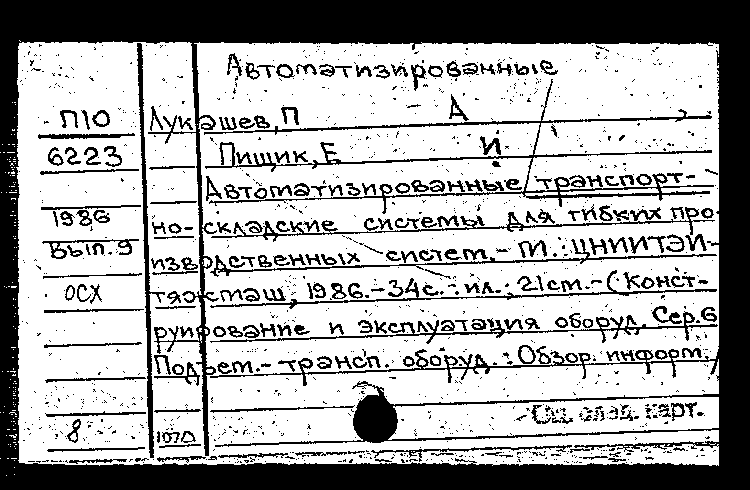 Автоматизированные
П10 Лукашев, П А
6223 Пищик, Е И.
Автоматизированные транспорт-
1986 но-складские системы для гибких про-
вып. 9 изводственных систем. - М.: ЦНИИТЭИ-
ОСХ тяжмаш, 1986. - 34с. : ил.; 21см. - (Конст-
руирование и эксплуатация оборуд. Сер. 6
Подъем.-трансп. оборуд. : Обзор. информ.;
См. след. карт.
8 107D